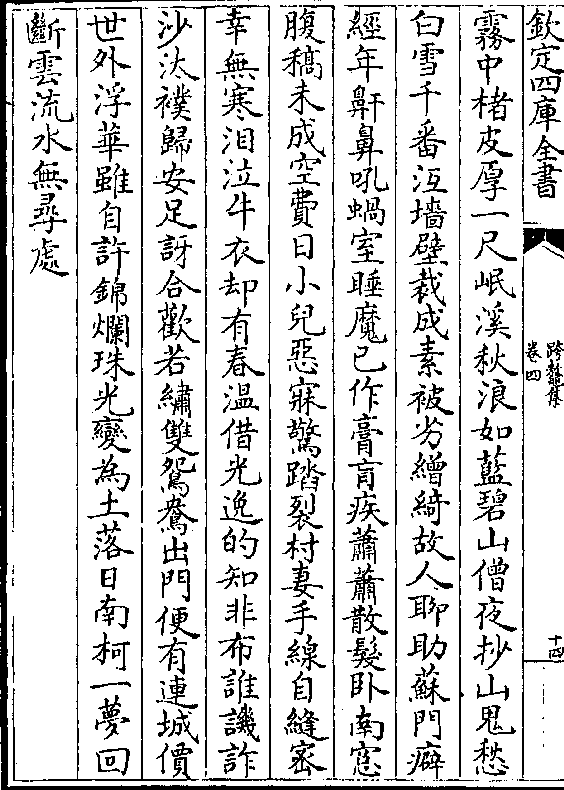 欽定四庫全書
跨鼇集
卷四
十四
霧中楮皮厚一尺岷溪秋浪如藍碧山僧夜抄山鬼愁
白雪千番沍墻壁裁成素被劣繒綺故人聊助蘇門癖
經年鼾鼻吼蝸室睡魔已作膏肓疾蕭蕭散髮卧南窓
腹稿未成空費日小兒惡寐驚踏裂村妻手線自縫宻
幸無寒泪泣牛衣却有春温借光逸的知非布誰譏詐
沙汰襆歸安足訝合歡若繡雙鴛鴦出門便有連城價
世外浮華雖自許錦爛珠光變為土落日南柯一夢回
斷雲流水無尋處